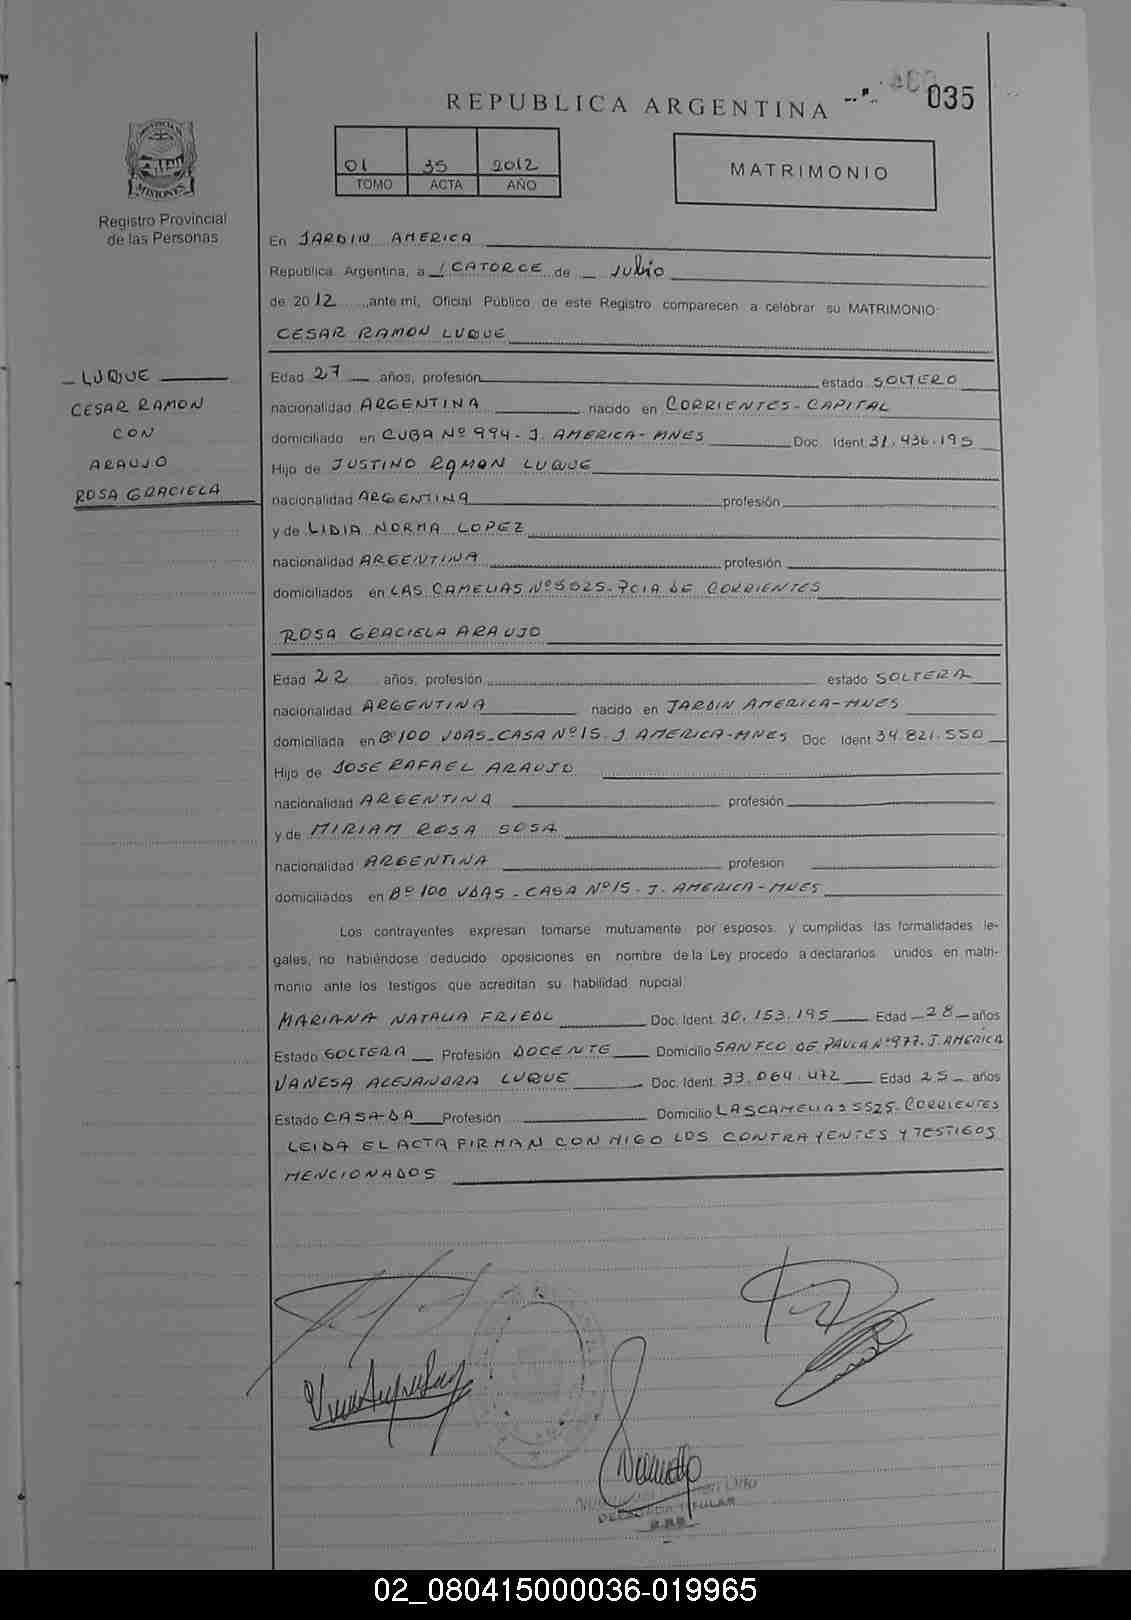 REPUBLICA ARGENTINA
035
01 35 2012
TOMO ACTA AÑO
MATRIMONIO
PROVINCIA DE
MISIONES
Registro Provincial
de las Personas
LUQUE
CESAR RAMON
CON
ARAUJO
ROSA GRACIELA
En JARDIN AMERICA
Republica Argentina, a CATORCE de Julio
de 2012 ,ante mí, Oficial Público de este Registro comparecen a celebrar su MATRIMONIO:
CESAR RAMON LUQUE
Edad 27 años, profesión estado SOLTERO
nacionalidad ARGENTINA nacido en CORRIENTES-CAPITAL
domiciliado en CUBA Nº 994- J. AMERICA-MNES Doc. Ident. 31.436.195
Hijo de JUSTINO RAMON LUQUE
nacionalidad ARGENTINA profesión
y de LIDIA NORMA LOPEZ
nacionalidad ARGENTINA profesión
domiciliados en LAS CAMELIAS Nº5525-PCIA DE CORRIENTES
ROSA GRACIELA ARAUJO
Edad 22 años, profesión estado SOLTERA
nacionalidad ARGENTINA nacido en JARDIN AMERICA-MNES
domiciliada en Bº100 VDAS-CASA Nº15-J. AMERICA-MNES Doc. Ident 34.821.550
Hijo de JOSE RAFAEL ARAUJO
nacionalidad ARGENTINA profesión
y de MIRIAM ROSA SOSA
nacionalidad ARGENTINA profesión
domiciliados en Bº 100 VDAS - CASA Nº15- J. AMERICA-MNES
Los contrayentes expresan tomarse mutuamente por esposos y cumplidas las formalidades le-
gales, no habiéndose deducido oposiciones en nombre de la Ley procedo a declararlos unidos en matri-
monio ante los testigos que acreditan su habilidad nupcial
MARIANA NATALIA FRIEDL Doc. Ident. 30.153.195 Edad 28 años
Estado SOLTERA Profesión DOCENTE Domicilio SAN FCO DE PAULA Nº977-J.AMERICA
VANESA ALEJANDRA LUQUE Doc. Ident. 33.064.472 Edad 25 años
Estado CASADA Profesión Domicilio LAS CAMELIAS 5525-CORRIENTES
LEIDA EL ACTA FIRMAN CON MIGO LOS CONTRAYENTES Y TESTIGOS
MENCIONADOS
DELEGADA TITULAR
02_080415000036-019965